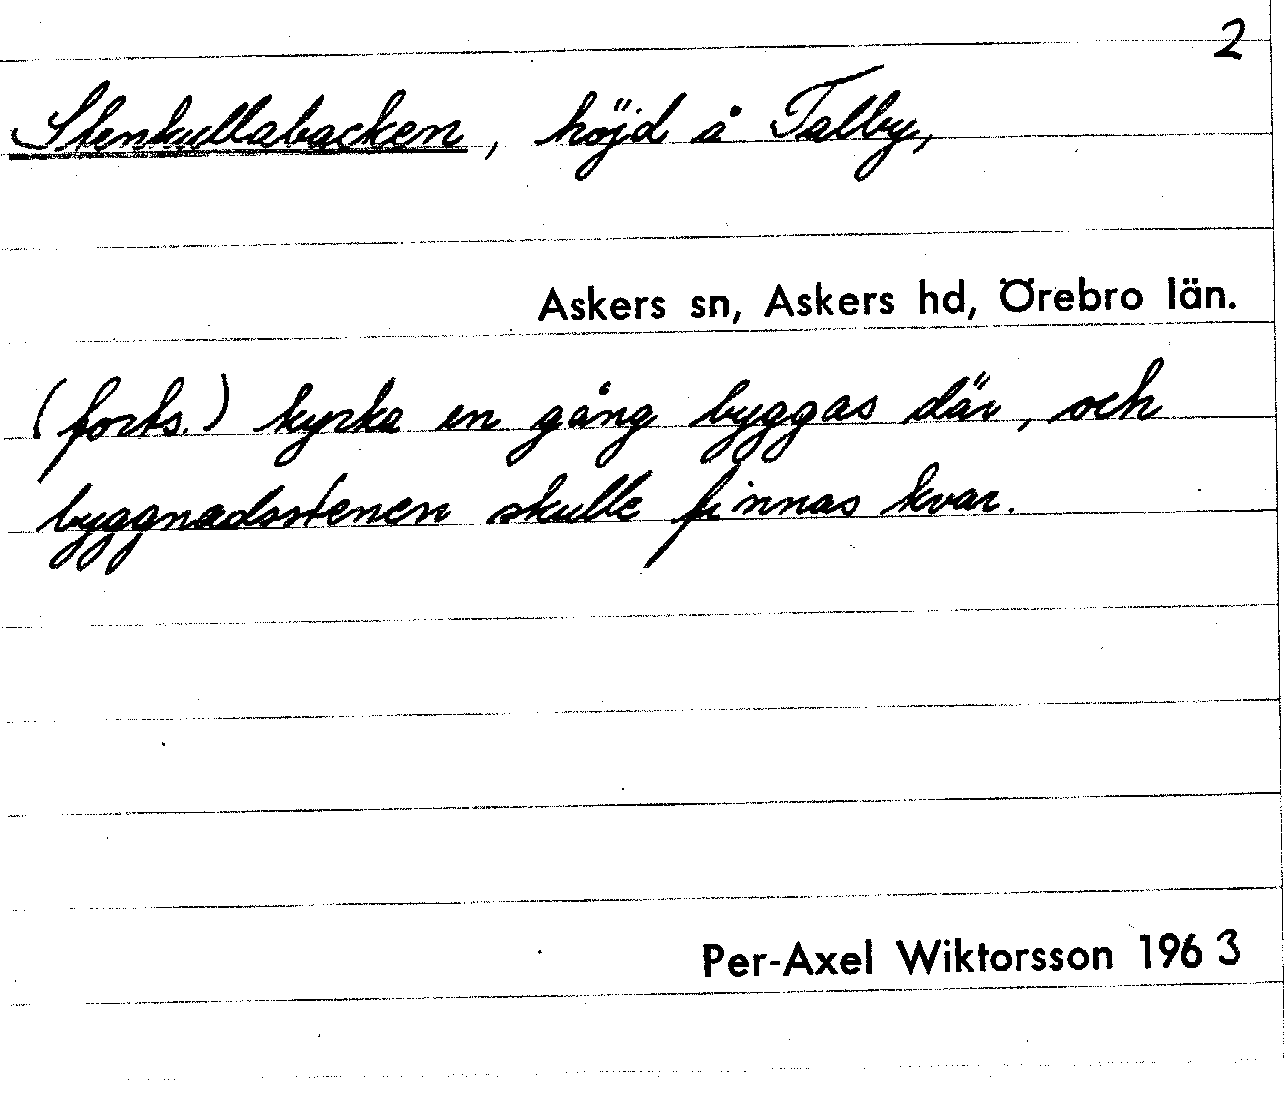 2
Stenkullabacken, höjd å Talby,
Askers sn, Askers hd, Örebro län.
(forts.) kyrka en gång byggas där, och
byggnadsstenen skulle finnas kvar.
Per-Axel Wiktorsson 1963